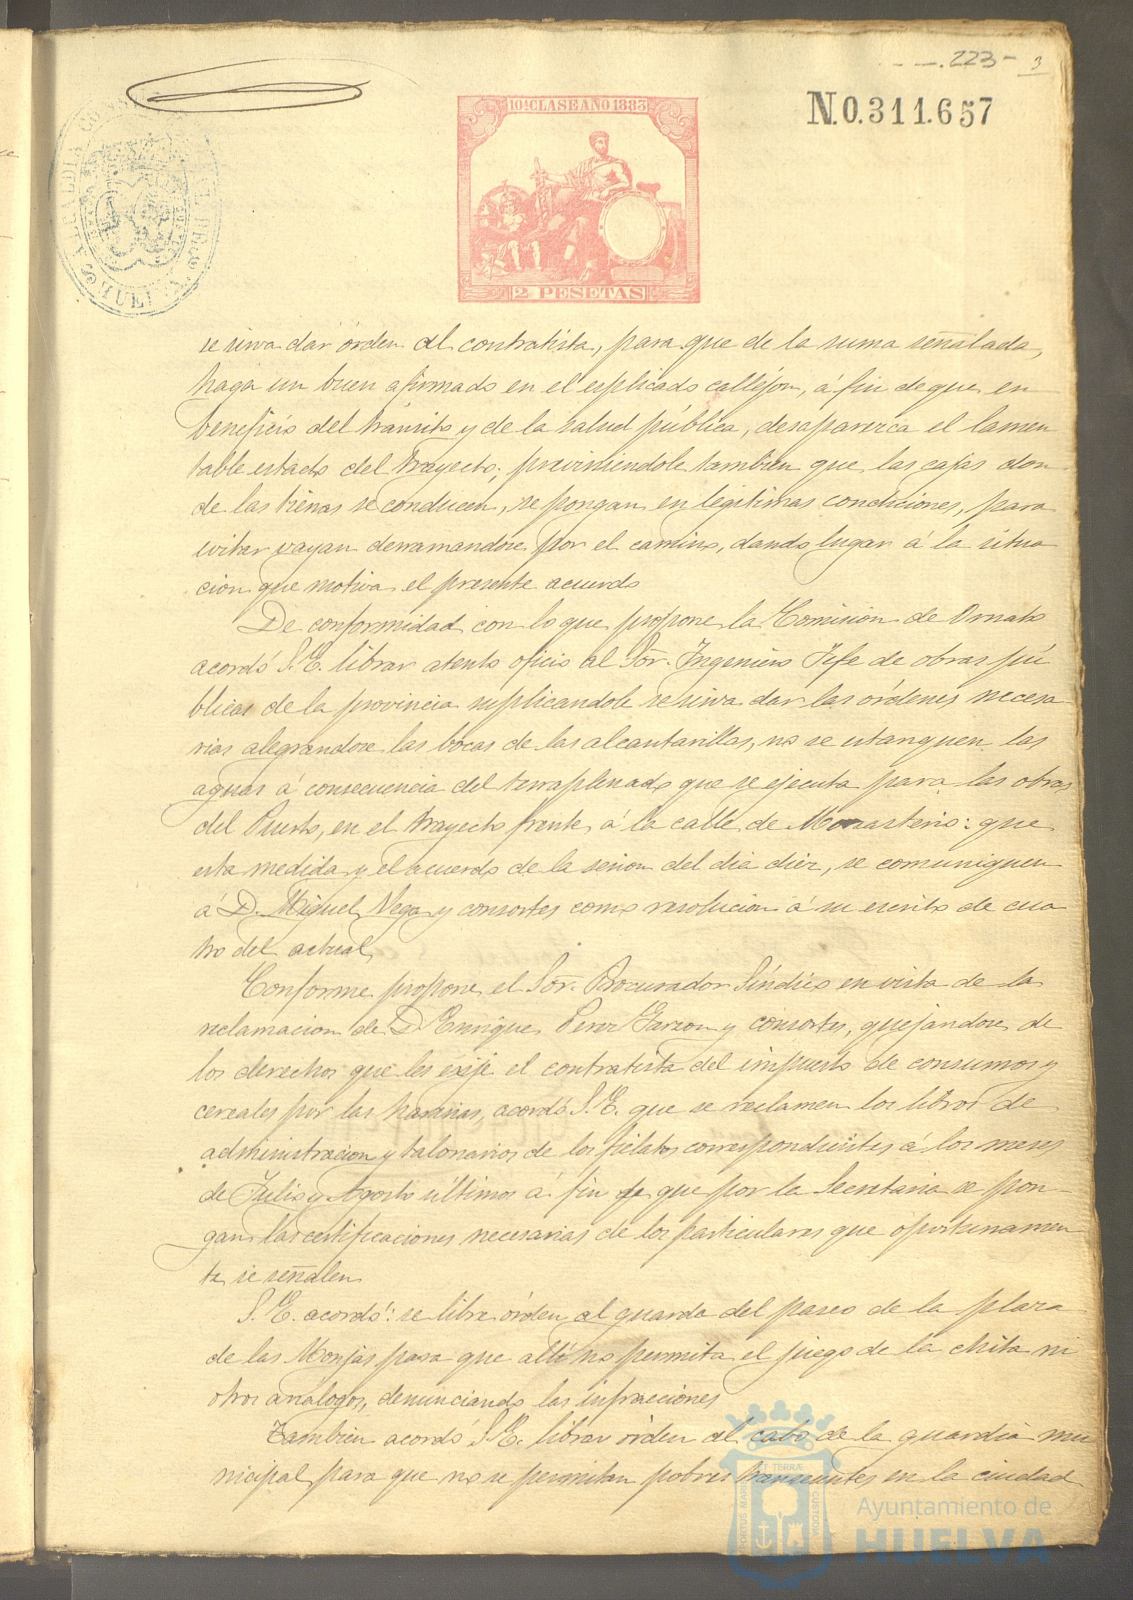 223
3
10ª CLASE AÑO 1883
N.0.311.657
2 PESETAS
se sirva dar órden al contratista, para que de la suma señalada,
haga un buen afirmado en el esplicado callejon, á fin de que en
beneficio del tránsito y de la salud pública, desaparezca el lamen
table estado del trayecto; previniendole tambien que las cajas don-
de las tierras se conducen, se pongan en legitimas condiciones, para
evitar vayan derramandose por el camino, dando lugar á la situa
cion que motiva el presente acuerdo
De conformidad con lo que propone la Comision de Ornato
acordó S.E. librar atento oficio al Sor. Ingeniero Jefe de obras pú
blicas de la provincia suplicandole se sirva dar las órdenes necesa
rias alegrandose las bocas de las alcantarillas, no se estanquen las
aguas á consecuencia del terraplenado que se ejecuta para las obras
del Puerto, en el trayecto frente á la calle de Monasterio: que
esta medida y el acuerdo de la sesion del dia diez, se comuniquen
á D. Miguel Vega y consortes como resolucion á su escrito de cua
tro del actual
Conforme propone el Sor. Procurador Síndico en vista de la
reclamacion de D. Enrique Perez Garzon y consortes, quejandose de
los derechos que les exije el contratista del impuesto de consumos y
cereales por las harinas, acordó S.E. que se reclamen los libros de
administracion y talonarios de los fielatos correspondientes á los meses
de Julio y Agosto últimos á fin de que por la Secretaria se pon-
gan las certificaciones necesarias de los particulares que oportunamen
te se señalen
S.E. acordó: se libre órden al guarda del paseo de la plaza
de las Monjas para que allí no permita el juego de la chita ni
otros análogos, denunciando las infracciones
Tambien acordó S.E. librar órden al cabo de la guardia mu
nicipal para que no se permitan pobres transeuntes en la ciudad
Ayuntamiento de
HUELVA